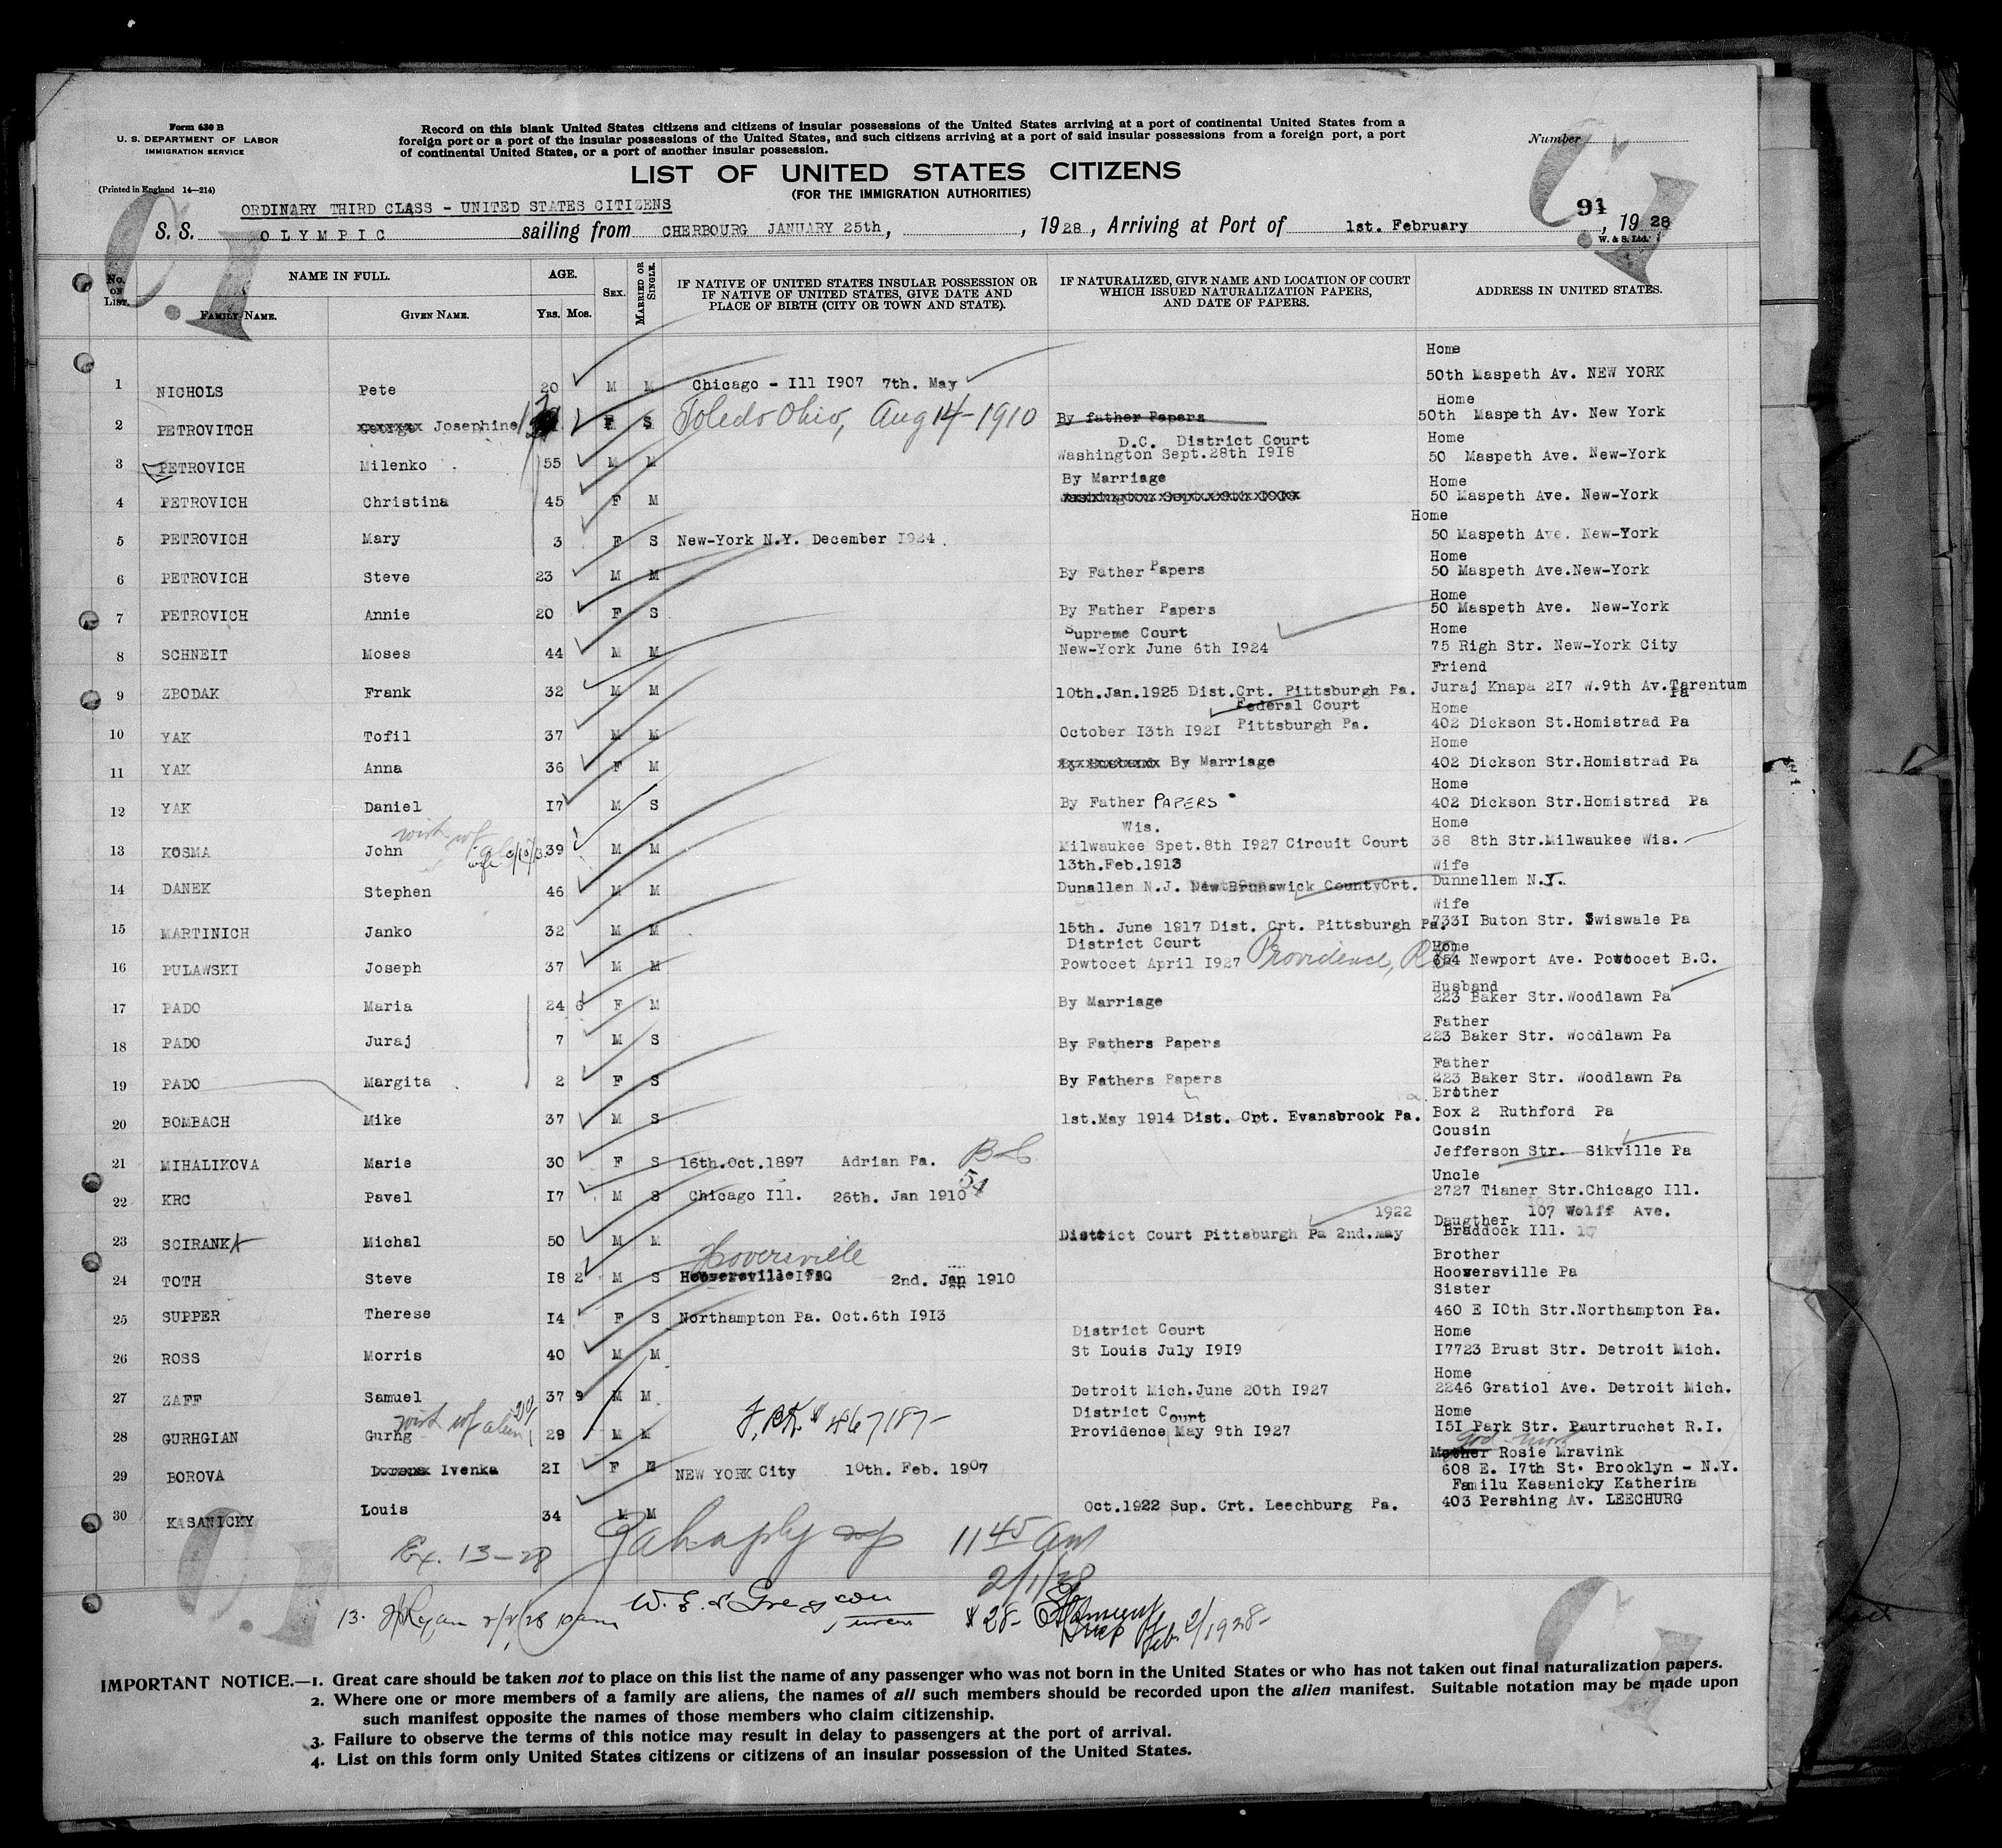 Form 630 B
U. S. DEPARTMENT OF LABOR
IMMIGRATION SERVICE
(Printed in England 14—214)
Record on this blank United States citizens and citizens of insular possessions of the United States arriving at a port of continental United States from a
foreign port or a port of the insular possessions of the United States, and such citizens arriving at a port of said insular possessions from a foreign port, a port
of continental United States, or a port of another insular possession.
Number
LIST OF UNITED STATES CITIZENS
(FOR THE IMMIGRATION AUTHORITIES)
ORDINARY THIRD CLASS - UNITED STATES CITIZENS
91
S. S. OLYMPIC sailing from CHERBOURG JANUARY 25th, , 1928, Arriving at Port of 1st. February , 1928
W. & S. Ltd.
No. ON LIST. NAME IN FULL. AGE. SEX. MARRIED OR SINGLE. IF NATIVE OF UNITED STATES INSULAR POSSESSION OR IF NATIVE OF UNITED STATES, GIVE DATE AND PLACE OF BIRTH (CITY OR TOWN AND STATE). IF NATURALIZED, GIVE NAME AND LOCATION OF COURT WHICH ISSUED NATURALIZATION PAPERS, AND DATE OF PAPERS. ADDRESS IN UNITED STATES.
FAMILY NAME. GIVEN NAME. YRS. MOS.
Home
1 NICHOLS Pete 20 M M Chicago - Ill I907 7th. May 50th Maspeth Av. NEW YORK
Home
2 PETROVITCH George Josephine F S Toledo Ohio, Aug 14-1910 By father Papers 50th Maspeth Av. New York
D.C. District Court Home
3 PETROVICH Milenko 55 M M Washington Sept.28th I9I8 50 Maspeth Ave. New-York
By Marriage Home
4 PETROVICH Christina 45 F M 50 Maspeth Ave. New-York
Home
5 PETROVICH Mary 3 F S New-York N.Y. December I924. 50 Maspeth Ave. New-York
Home
6 PETROVICH Steve 23 M M By Father Papers 50 Maspeth Ave.New-York
Home
7 PETROVICH Annie 20 F S By Father Papers 50 Maspeth Ave. New-York
Supreme Court Home
8 SCHNEIT Moses 44 M M New-York June 6th I924 75 Righ Str. New-York City
Friend
9 ZBODAK Frank 32 M M 10th.Jan.1925 Dist.Crt. Pittsburgh Pa. Juraj Knapa 2I7 W.9th Av.Tarentum Pa
Federal Court Home
10 YAK Tofil 37 M M October I3th I92I Pittsburgh Pa. 402 Dickson St.Homistrad Pa
Home
11 YAK Anna 36 F M By Marriage 402 Dickson Str.Homistrad Pa
Home
12 YAK Daniel I7 M S By Father PAPERS 402 Dickson Str.Homistrad Pa
Wis. Home
13 KOSMA John 39 M M Milwaukee Spet.8th I927 Circuit Court 38 8th Str.Milwaukee Wis.
wife
13th.Feb.1913 Wife
14 DANEK Stephen 46 M M Dunallen N.J. New Brunswick CountyCrt. Dunnellem N.Y.
Wife
15 MARTINICH Janko 32 M M 15th. June 1917 Dist. Crt. Pittsburgh Pa. 733I Buton Str. Swiswale Pa
District Court Home
16 PULAWSKI Joseph 37 M M Powtocet April I927 Providence, R.I. 654 Newport Ave. Powtocet B.C.
Husband
17 PADO Maria 24 6 F M By Marriage 223 Baker Str.Woodlawn Pa
Father
18 PADO Juraj 7 M S By Fathers Papers 223 Baker Str. Woodlawn Pa
Father
19 PADO Margita 2 F S By Fathers Papers 223 Baker Str. Woodlawn Pa
Brother
20 BOMBACH Mike 37 M S 1st.May 1914 Dist. Crt. Evansbrook Pa. Box 2 Ruthford Pa
Cousin
21 MIHALIKOVA Marie 30 F S 16th.Oct.1897 Adrian Pa. Jefferson Str. Sikville Pa
Uncle
22 KRC Pavel I7 M S Chicago Ill. 26th. Jan 1910 54 2727 Tianer Str.Chicago Ill.
1922 Daugther 107 Wolff Ave.
23 SCIRANKA Michal 50 M M District Court Pittsburgh Pa 2nd.may Braddock Ill.
Hooversville Brother
24 TOTH Steve I8 2 M S 2nd. Jan 1910 Hooversville Pa
Sister
25 SUPPER Therese I4 F S Northampton Pa. Oct.6th I9I3 460 E IOth Str.Northampton Pa.
District Court Home
26 ROSS Morris 40 M M St Louis July I9I9 I7723 Brust Str. Detroit Mich.
Home
27 ZAFF Samuel 37 9 M M Detroit Mich.June 20th I927 2246 Gratiol Ave. Detroit Mich.
District Court Home
28 GURHGIAN Gurhg 29 M M Providence May 9th I927 I5I Park Str. Paurtruchet R.I.
Mother Rosie Mravink
29 BOROVA Ivenka 2I F NEW YORK City 10th. Feb. 1907 608 E. I7th St. Brooklyn - N.Y.
Familu Kasanicky Katherina
30 KASANICKY Louis 34 M M Oct.1922 Sup. Crt. Leechburg Pa. 403 Pershing Av. LEECHURG
Ex. 13-28 11 45 am
2/1/28
13. 2/2/28 $28- Feb. 2/1928-
IMPORTANT NOTICE.—1. Great care should be taken not to place on this list the name of any passenger who was not born in the United States or who has not taken out final naturalization papers.
2. Where one or more members of a family are aliens, the names of all such members should be recorded upon the alien manifest. Suitable notation may be made upon
such manifest opposite the names of those members who claim citizenship.
3. Failure to observe the terms of this notice may result in delay to passengers at the port of arrival.
4. List on this form only United States citizens or citizens of an insular possession of the United States.